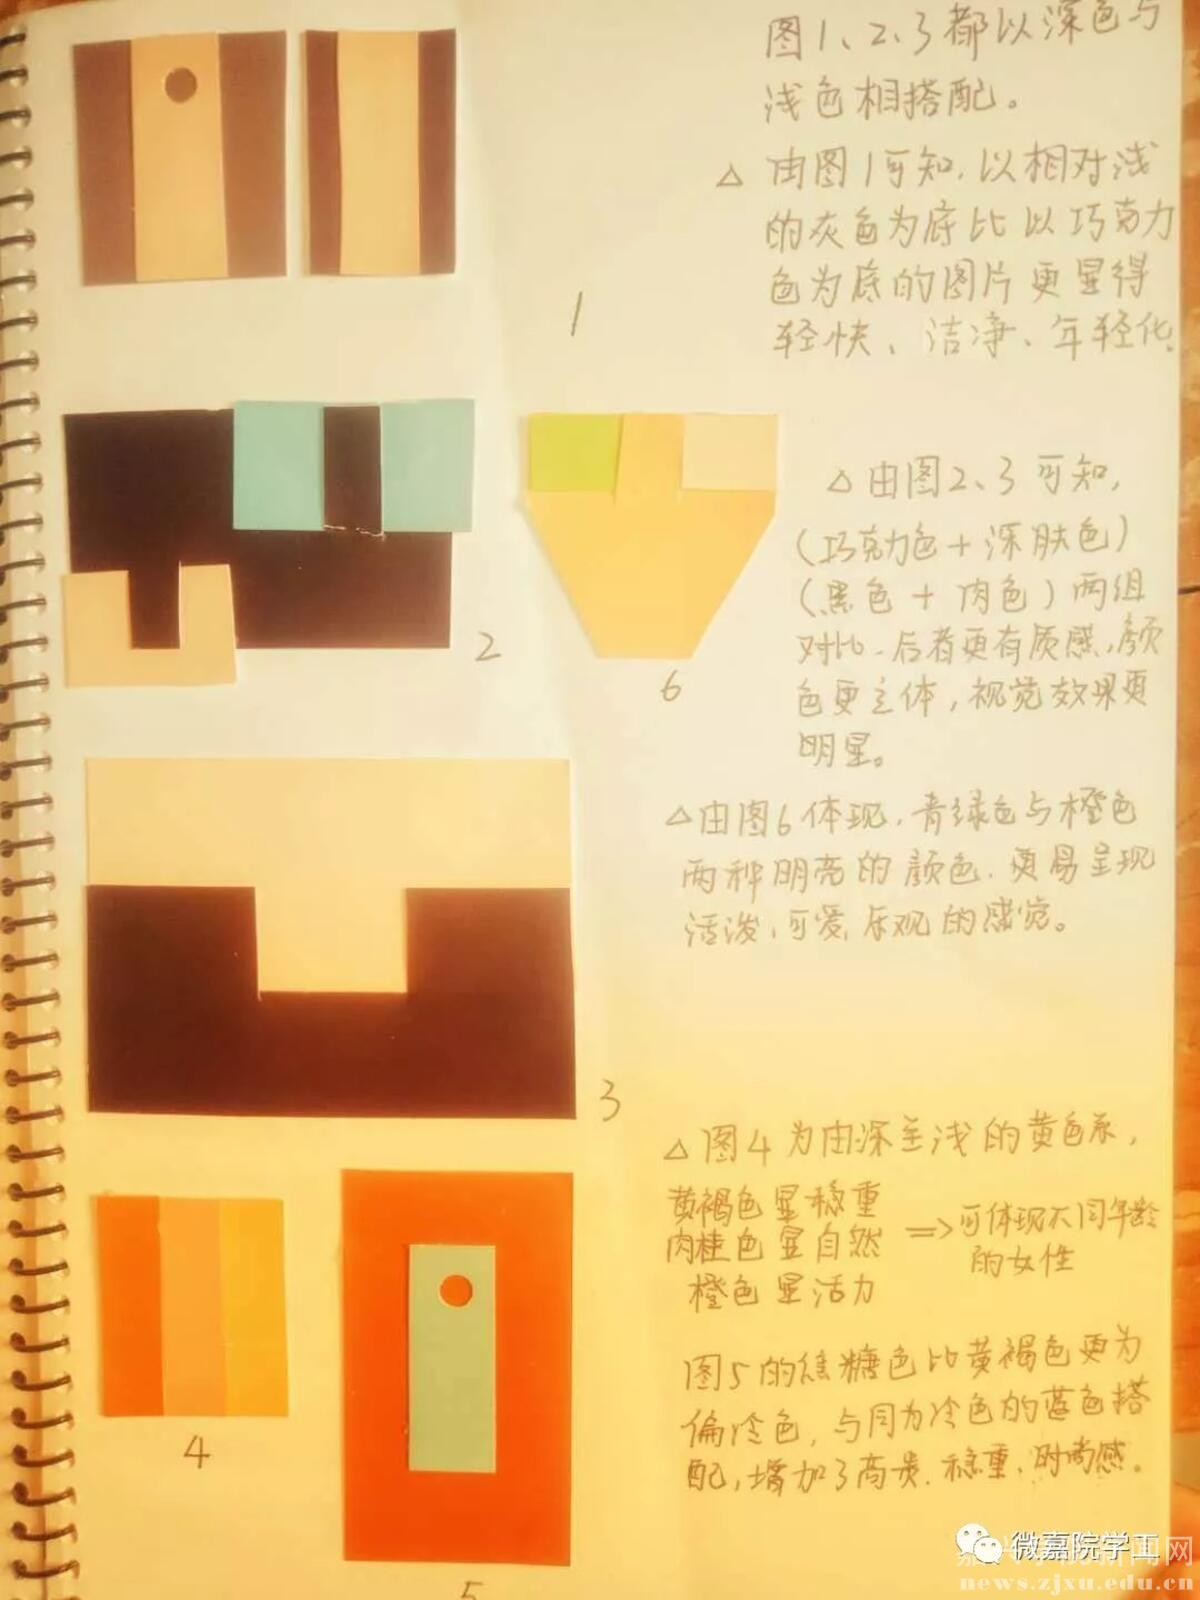 图1、2、3都以深色与
浅色相搭配。
△ 由图1可知,以相对浅
的灰色为底比以巧克力
色为底的图片更显得
轻快、洁净、年轻化.
1
△由图2、3可知,
(巧克力色+深肤色)
(黑色+肉色)两组
对比.后者更有质感,颜
色更立体,视觉效果更
明显。
2
6
△由图6体现.青绿色与橙色
两种明亮的颜色.更易呈现
活泼、可爱、乐观的感觉。
3
△图4为由深至浅的黄色系,
黄褐色显稳重
肉桂色显自然 => 可体现不同年龄
的女性
橙色显活力
图5的焦糖色比黄褐色更为
偏冷色,与同为冷色的蓝色搭
配,增加了高贵.稳重、时尚感。
4
5
微嘉院学工
新闻网
news.zjxu.edu.cn